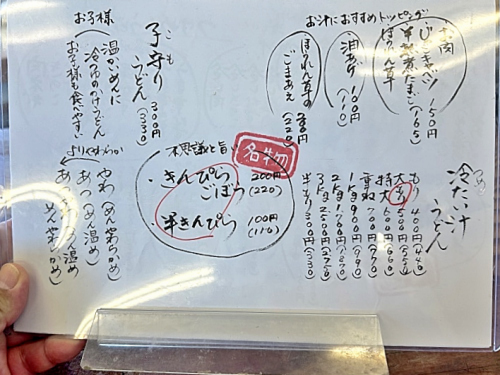 冷たい汁
うどん
もり 400円(440)
大もり 500円(550)
特大 600円(660)
重ね 700円(770)
1kg 900円(990)
2kg 1700円(1870)
3kg 2500円(2750)
半もり 300円(330)
お汁におすすめトッピング
お肉
150円
(165)
ほうれん草
油あげ 100円
(110)
ほうれん草の
ごまあえ
(220)
子守り
こもり
うどん
300円
(330)
お子様
温かめんに
冷汁のかけうどん
お子様も食べやすい
名物
不思議と旨い
きんぴら
ごぼう
200円
(220)
半きんぴら 100円
(110)
よりやわらか
やわ(めん柔わかめ)
あつ(めん温め)
あつ
めん温め
めん柔わかめ